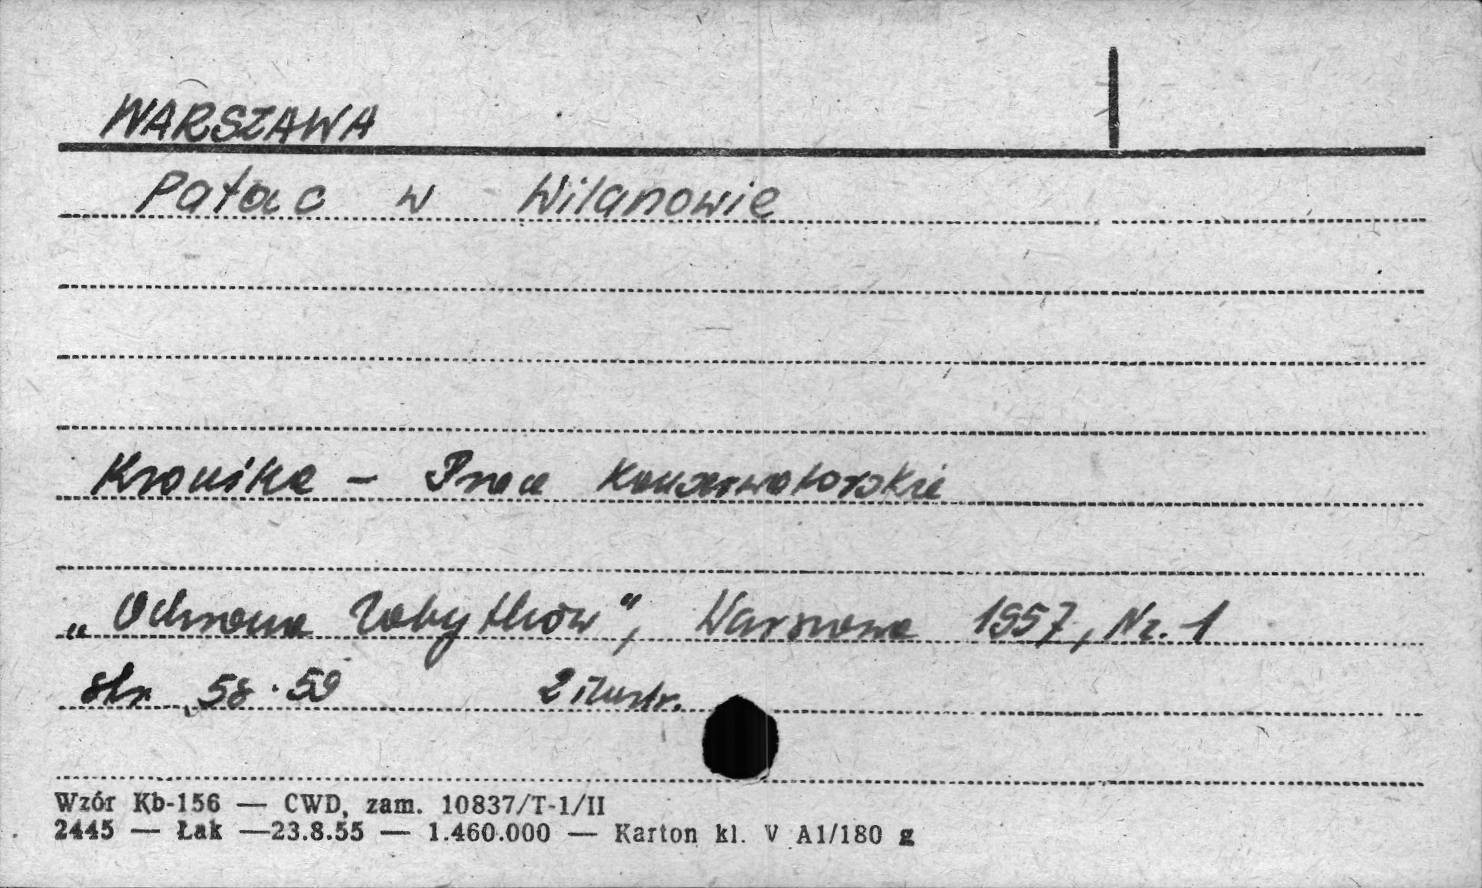 WARSZAWA
Pałac w Wilanowie
Kronika – Prace Konserwatorskie
„Ochrona Zabytków”, Warszawa 1957, Nr. 1
str. 58-59 2 ilustr.
Wzór Kb-156 — CWD, zam. 10837/T-1/II
2445 — Łak —23.8.55 — 1.460.000 — Karton kl. V A1/180 g